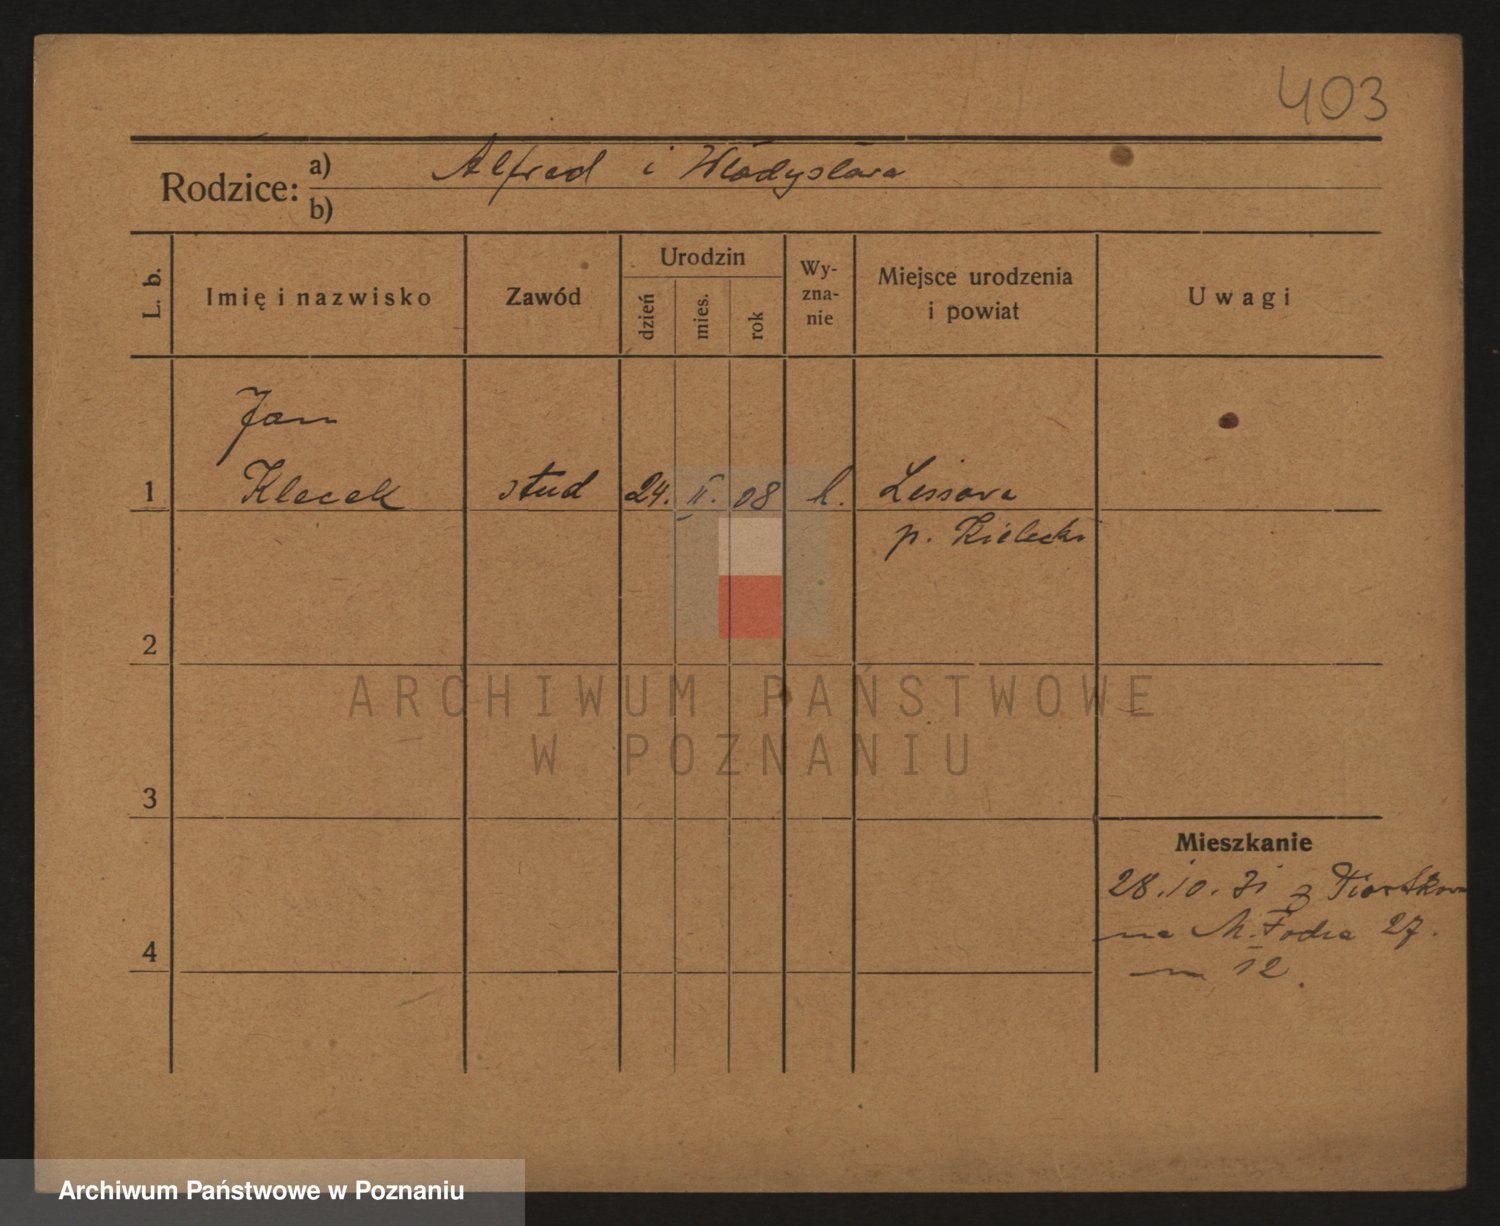 403
Rodzice: a) Alfred i Władysława
b)
L. b. Imię i nazwisko Zawód Urodzin dzień mies. rok Wy-zna-nie Miejsce urodzenia i powiat Uwagi
Jan
1 Klecek stud 24. II. 08 k. Lissowa
p. Kielecki
2
ARCHIWUM PAŃSTWOWE
W POZNANIU
3
Mieszkanie
28.10.31 z
na 27.
4
m 12.
Archiwum Państwowe w Poznaniu